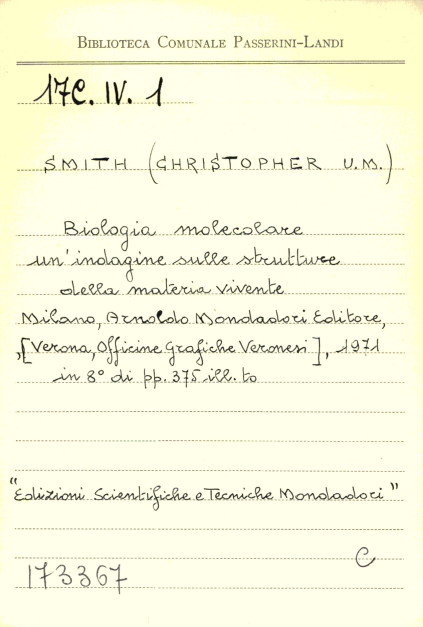 BIBLIOTECA COMUNALE PASSERINI-LANDI
17C. IV. 1
SMITH (CHRISTOPHER U.M.)
Biologia molecolare
un'indagine sulle strutture
della materia vivente
Milano, Arnoldo Mondadori Editore,
,[Verona, Officine Grafiche Veronesi], 1971
in 8° di pp. 375 ill. to
"Edizioni Scientifiche e Tecniche Mondadori"
C
173367